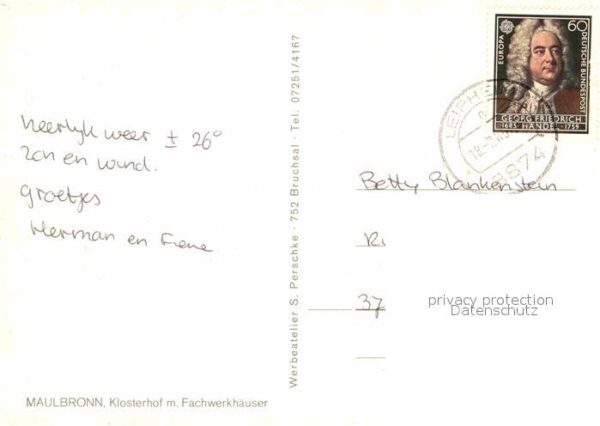 heerlijk weer ± 26°
zon en wind.
groetjes
Herman en Fiene
MAULBRONN, Klosterhof m. Fachwerkhäuser
Werbeatelier S. Perschke · 752 Bruchsal · Tel. 07251/4167
EUROPA
60
DEUTSCHE BUNDESPOST
GEORG FRIEDRICH
1685 HÄNDEL 1759
LEIPHEIM
8874
Betty Blankenstein
37
privacy protection
Datenschutz